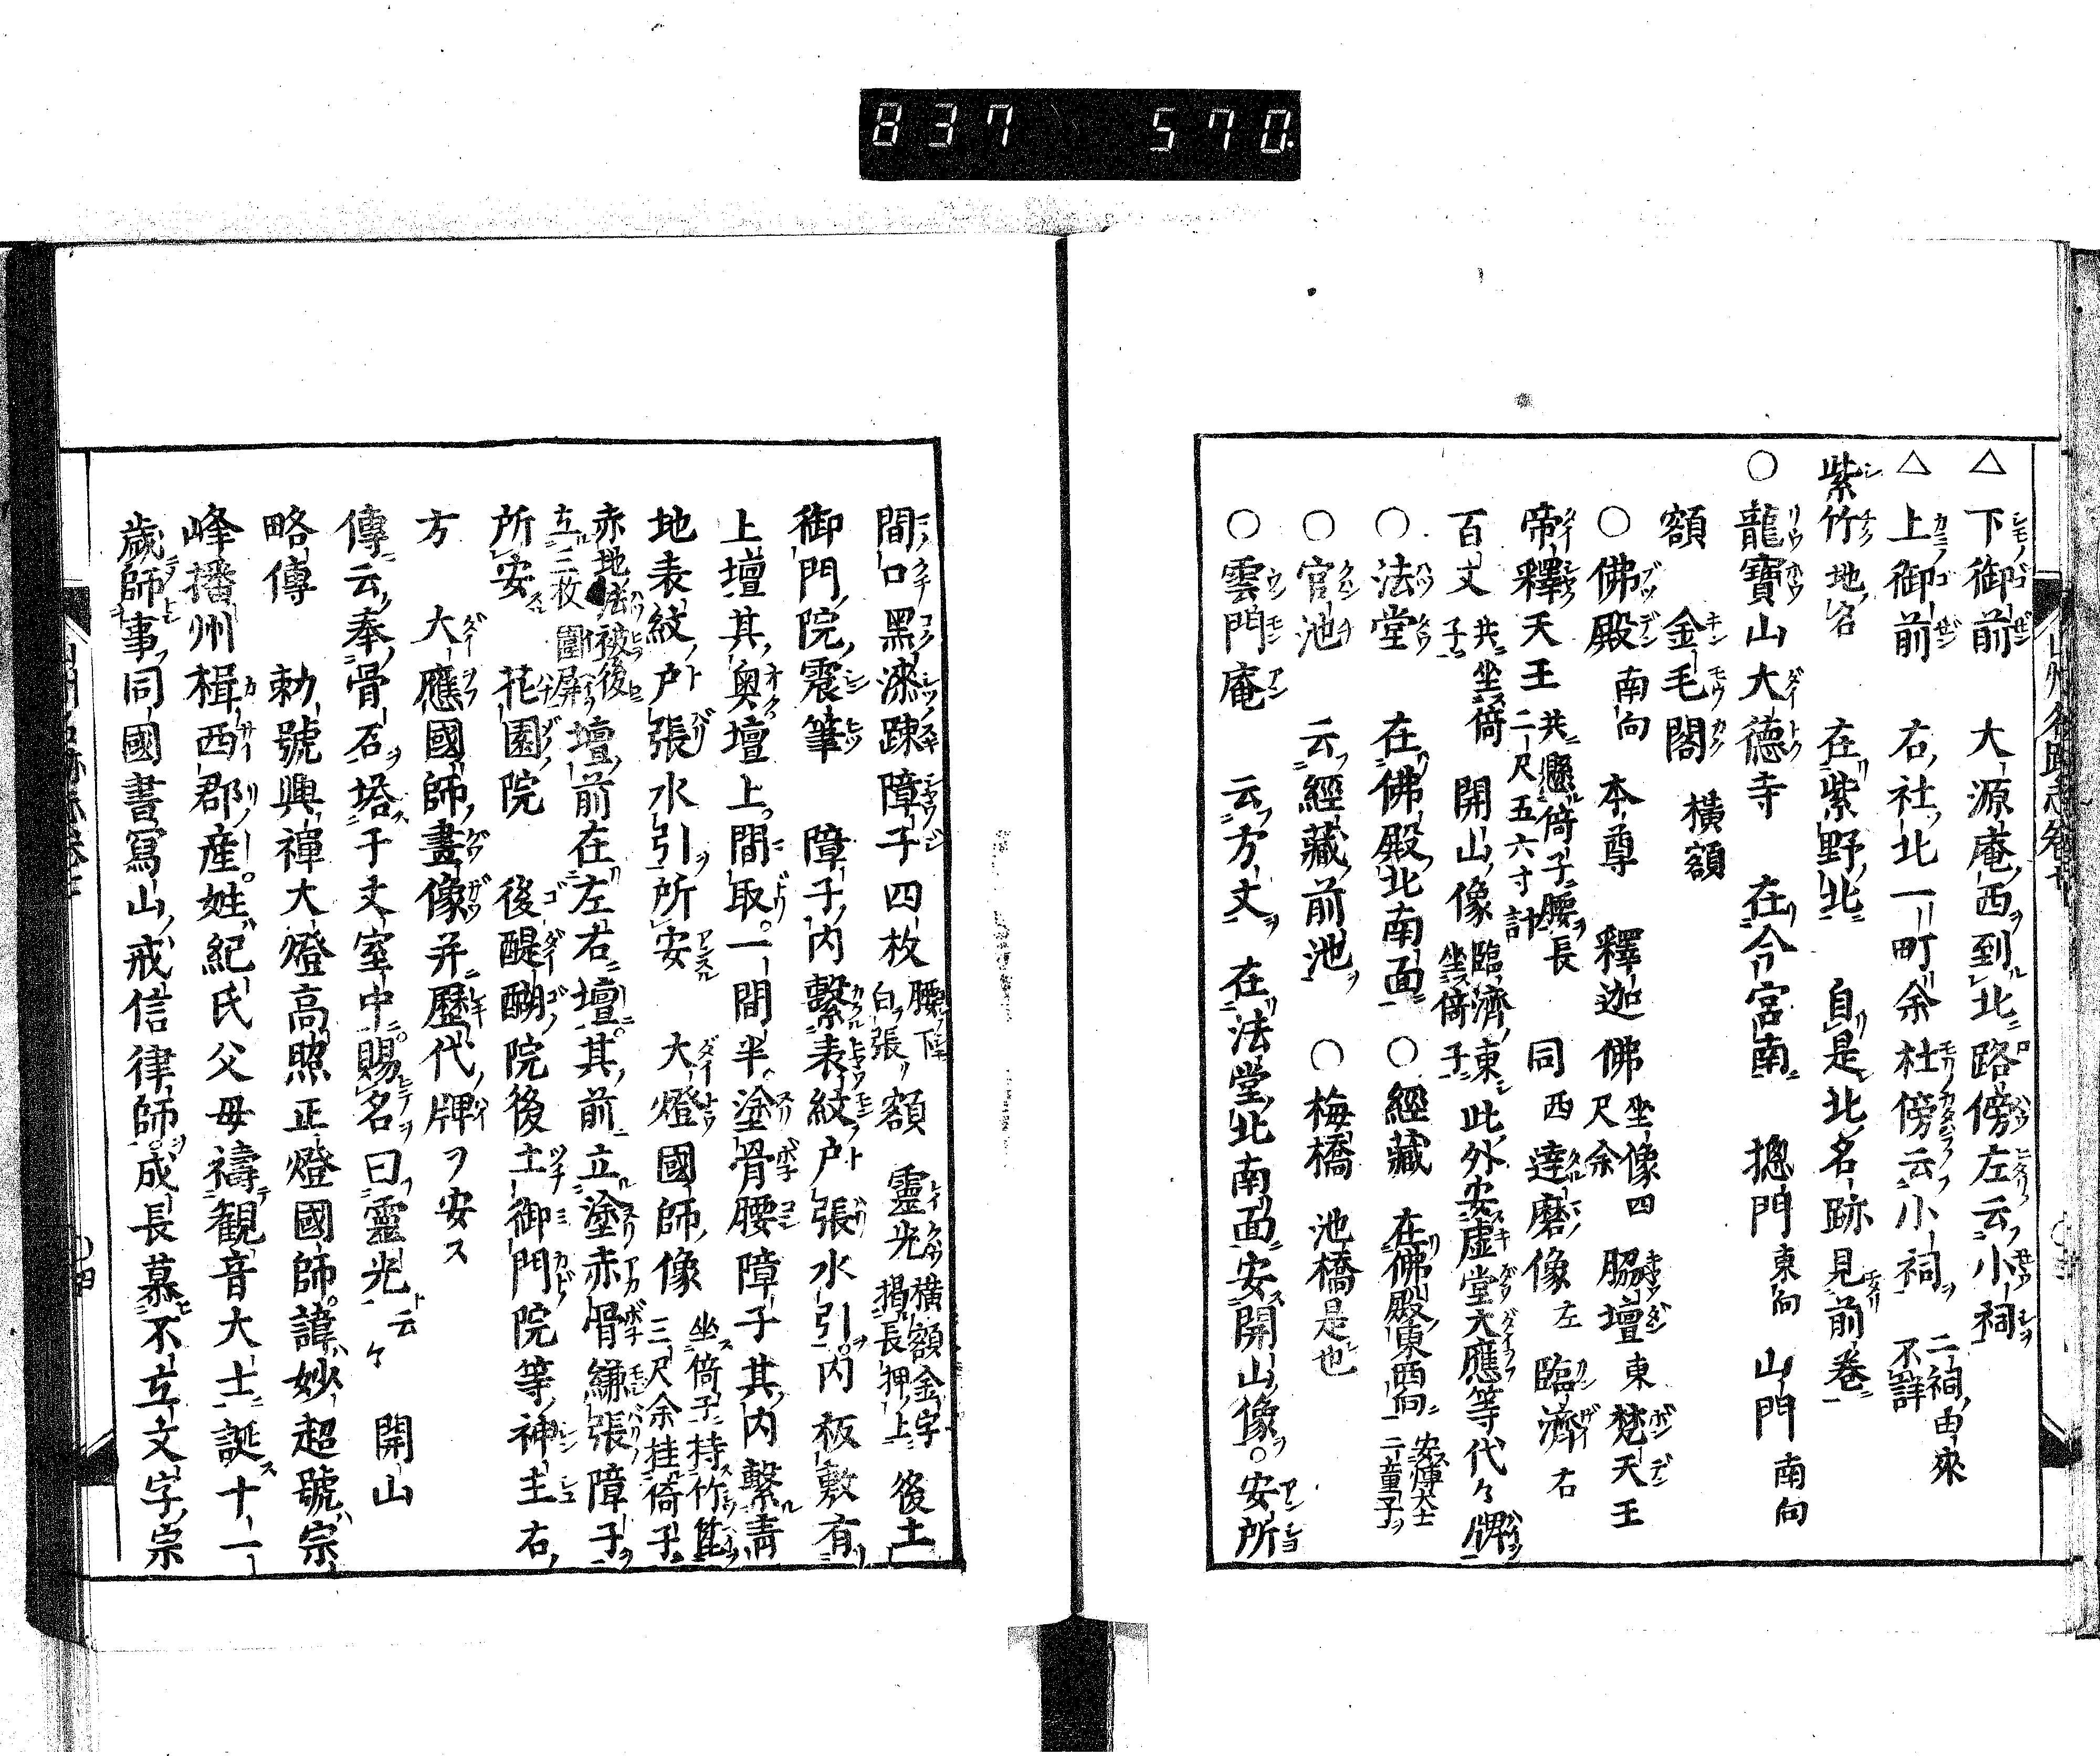 837 570
△下御前 大源庵西到北路傍左云小祠
△上御前 右社北一町余杜傍云小祠 二祠由來不詳
紫竹地名 在紫野北 自是北名跡見前卷
○龍寶山大德寺 在今宮南 摠門東向 山門南向
額 金毛閣 横額
○佛殿南向 本尊 釋迦佛坐像四尺余 脇壇東 梵天王
帝釋天王共懸倚子腰長二尺五六寸計 同西 達磨像左 臨濟右
百丈共坐倚子 開山像臨濟東坐倚子 此外安虚堂大應等代々牌
○法堂 在佛殿北南面 ○經藏 在佛殿東西向安傅大士二童子
○官池 云經藏前池 ○梅橋 池橋是也
○雲門庵 云方丈 在法堂北南面安開山像○安所
間口黑漆疎障子四枚腰下白張 額 靈光横額金字揭長押上 後土
御門院震筆 障子内繫表紋戸張水引内板敷有
上壇其奥壇上間取一間半塗骨腰障子其内繫青
地表紋戸張水引所安 大燈國師像坐倚子持竹篦三尺余挂倚子
赤地法被後立三枚圍屏 壇前在左右壇其前立塗赤骨縁張障子
所安 花園院 後醍醐院後土御門院等神主右
方 大應國師畫像并歷代牌ヲ安ス
傳云奉骨石塔于丈室中賜名曰靈光ト云々 開山
略傳 勅號興禪大燈高照正燈國師諱妙超號宗
峰播州楫西郡産姓紀氏父母禱観音大士誕十一
歳師事同國書寫山戒信律師成長慕不立文字宗